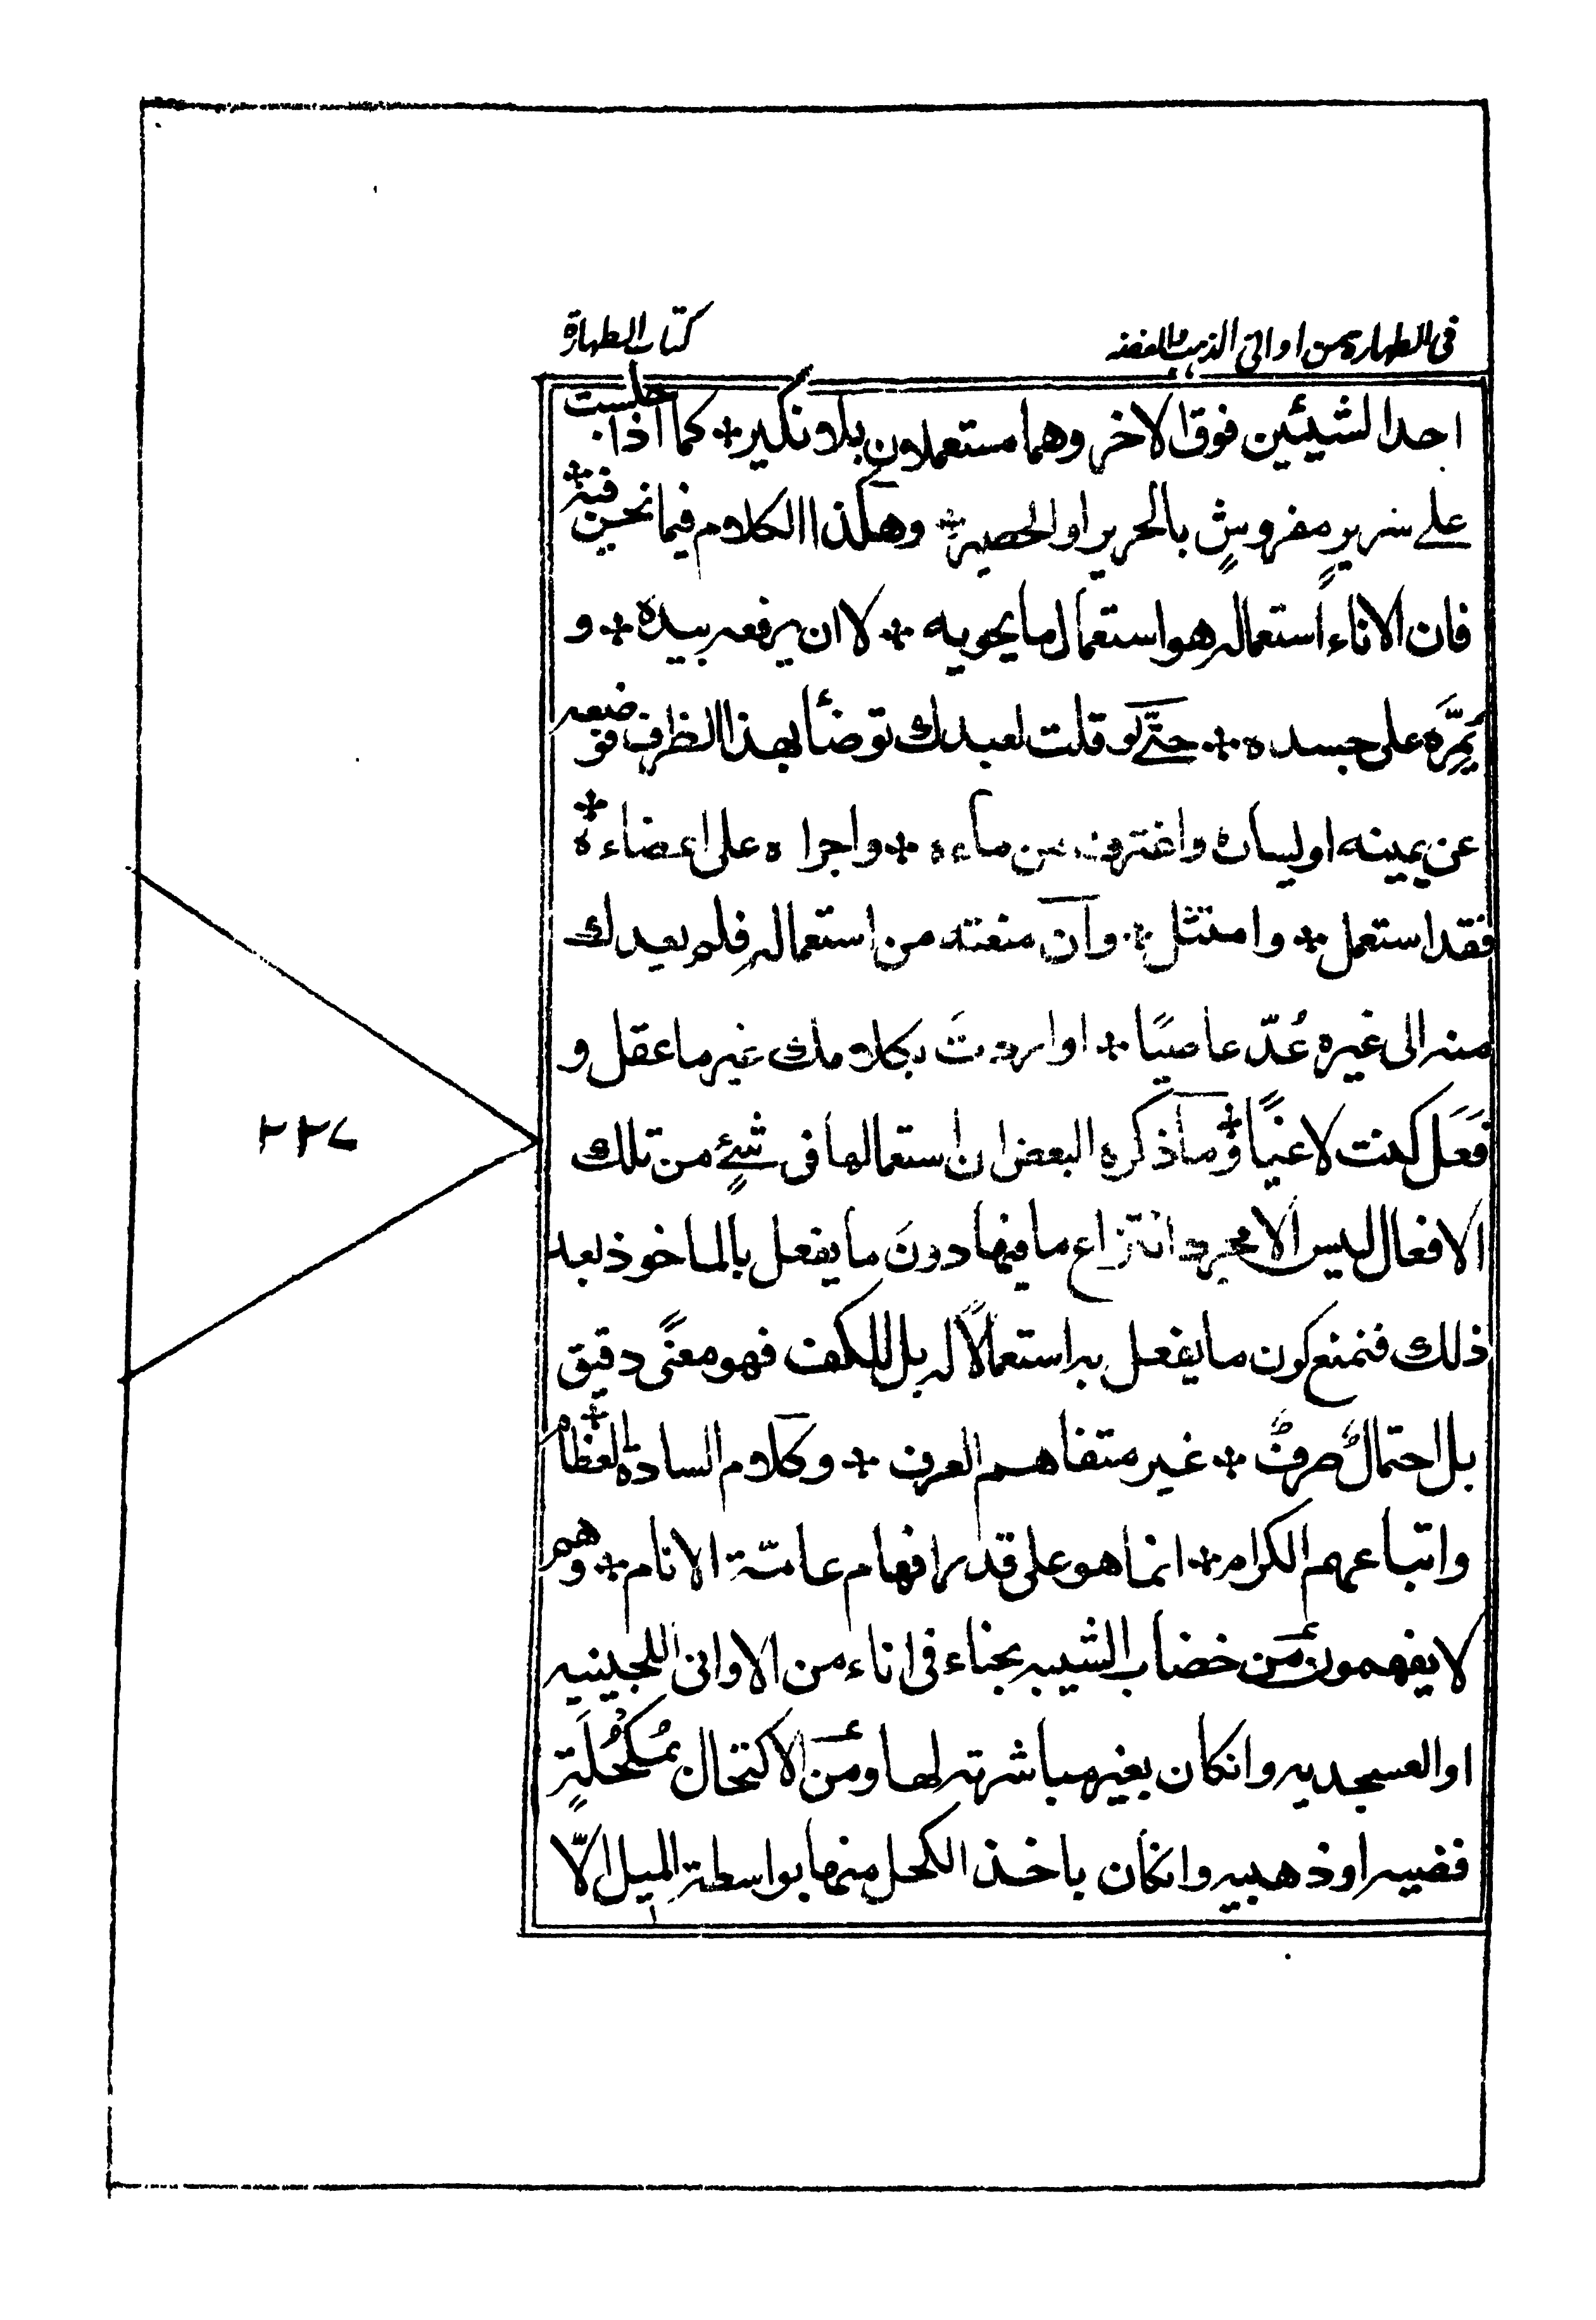 فى الطهارة من اوانى الذهب والفضه
كتاب الطهارة
احد الشيئين فوق الاخر وهما مستعملان بلا نكير ٭ كما اذا جلست
على سرير مفروشٍ بالحرير او الحصير ٭ وهكذا الكلام فيما نحن فيه ٭
فان الاناء استعماله هو استعمال ما يحويه ٭ لا ان يرفعه بيده ٭ و
يُمِرَّه على جسده ٭ حتّى لو قلت لعبدك توضأ بهذا الظرف فوضعه
عن يمينه او يساره واغترف من ماءه ٭ واجراه على اعضاءه ٭
فقد استعمل ٭ وامتثل ٭ وان منعته من استعماله فلم يعد لك
منه الى غيره عُدّ عاصيًا ٭ او اردتَ بكلامك غير ما عقل و
فَعَل كنت لاغيًا ٭ وما ذكره البعض ان استعمالها فى شئٍ من تلك
الافعال ليس الا مجرد انتزاع ما فيها دونَ ما يفعل بالماخوذ بعد
ذلك فنمنع كون ما يفعل به استعمالاً له بل للكف فهو معنًى دقيق
بل احتمالٌ صرفٌ ٭ غير متفاهم العرف ٭ وكلام السادة العظام ٭
واتباعهم الكرام ٭ انما هو على قدر افهام عامّة الانام ٭ وهم
لا يفهمون من خضاب الشيب بحناء فى اناء من الاوانى اللجينيه
او العسجديه وانكان بغير مباشرته لها ومن الاكتحال بمُكحُلَةٍ
فضيه او ذهبيه وانكان باخذ الكحل منها بواسطة الميل الّا
٢٢٧